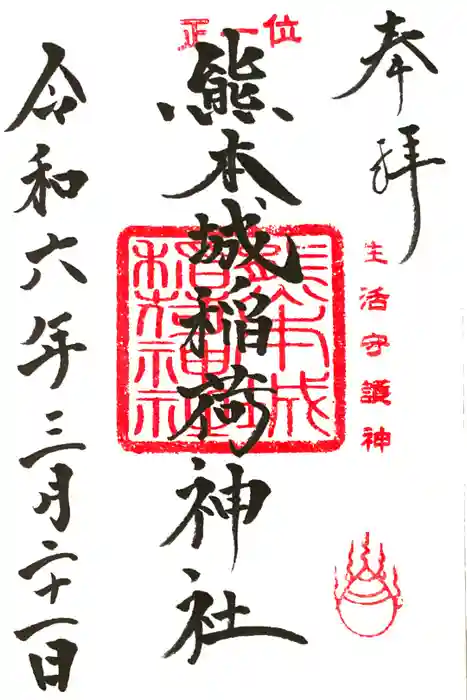 奉拝
生活守護神
正一位
熊本城稲荷神社
熊本城
稲荷神社
令和六年三月二十一日